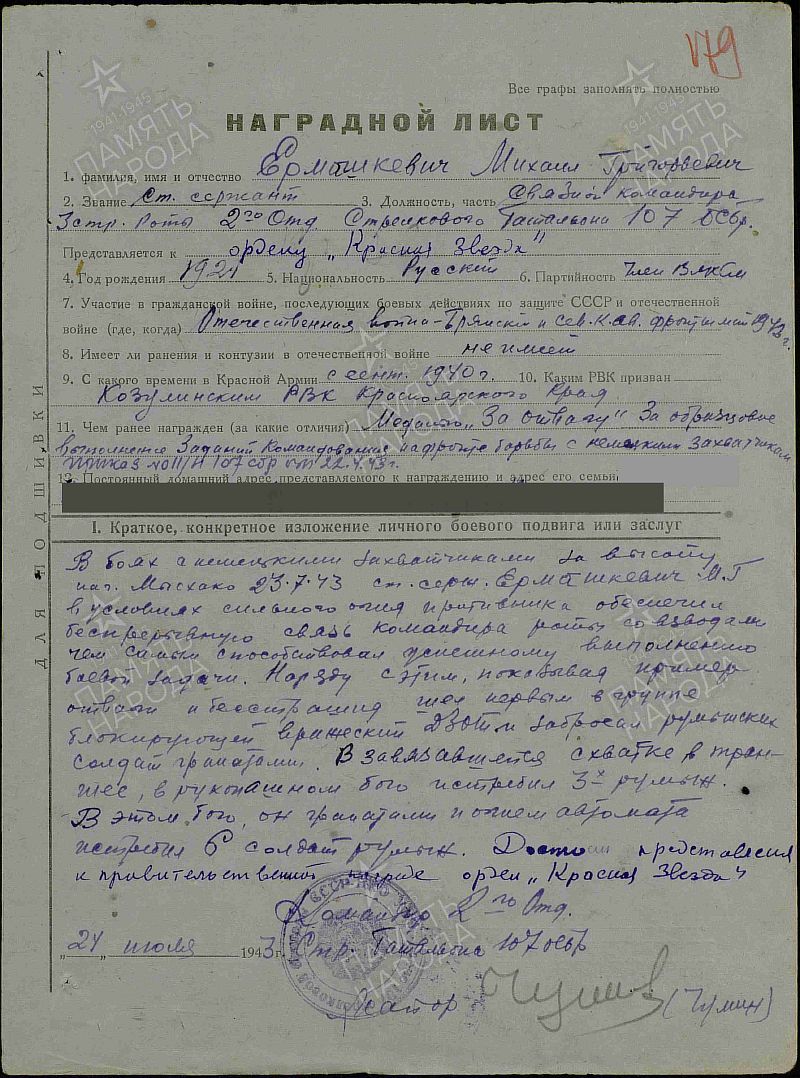 179
Все графы заполнять полностью
НАГРАДНОЙ ЛИСТ
1. фамилия, имя и отчество Ермашкевич Михаил Григорьевич
2. Звание ст. сержант 3. Должность, часть Связной командира
3 стр. Роты 2го Отд. Стрелкового Батальона 107 ОСбр.
Представляется к ордену „Красная Звезда"
4. Год рождения 1921 5. Национальность Русский 6. Партийность Член ВЛКСМ
7. Участие в гражданской войне, последующих боевых действиях по защите СССР и отечественной
войне (где, когда) Отечественная война-Брянский и Сев. Кав. фронты 1943 г.
8. Имеет ли ранения и контузии в отечественной войне не имеет
9. С какого времени в Красной Армии с сент. 1940 г. 10. Каким РВК призван
Козулинским РВК Красноярского Края
11. Чем ранее награжден (за какие отличия) Медалью „За отвагу" За образцовое
выполнение Заданий Командования на фронте борьбы с немецкими Захватчиками
приказ №011/Н 107 сбр от 22.4.43 г.
12. Постоянный домашний адрес представляемого к награждению и адрес его семьи
I. Краткое, конкретное изложение личного боевого подвига или заслуг
В боях с немецкими захватчиками за высоту
Мысхако 23.7.43 ст. серж. Ермашкевич М.Г
в условиях сильного огня противника обеспечил
беспрерывную связь командира роты со взводами
чем самым способствовал успешному выполнению
боевой задачи. Наряду с этим, показывая пример
отваги и бесстрашия шел первым в группе
блокирующей вражеский ДЗОТ и забросал румынских
солдат гранатами. В завязавшейся схватке в тран-
шее, в рукопашном бою истребил 3х румын.
В этом бою, он гранатами и огнем автомата
истребил 6 солдат румын. Достоин представления
к правительственной награде орден „Красная Звезда"
Командир 2го Отд.
„24" июля 1943 г. Стр. Батальона 107 осбр
Майор (Чумин)
ДЛЯ ПОДШИВКИ
1941-1945
ПАМЯТЬ
НАРОДА